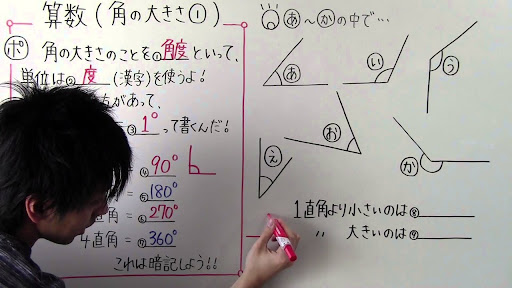 算数(角の大きさ①)
ポ 角の大きさのことを①角度といって、
単位は②度(漢字)を使うよ!
方があって、
③1°って書くんだ!
= ④90°
= ⑤180°
直角 = ⑥270°
4直角 = ⑦360°
これは暗記しよう!!
あ~かの中で…
あ
い
う
え
お
か
1直角より小さいのは⑧
〃 大きいのは⑨